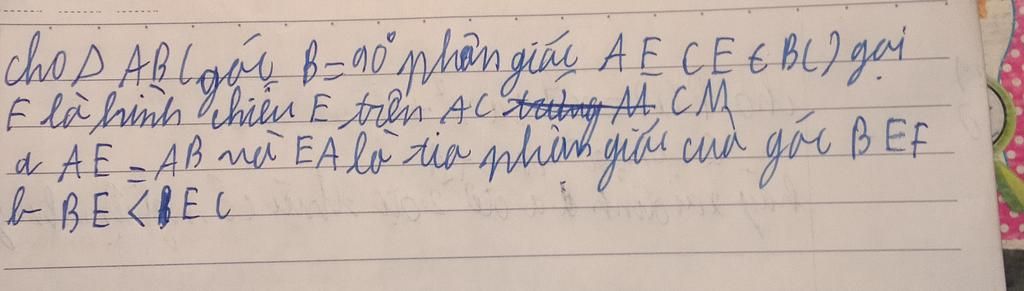 cho Δ ABC góc B = 90° phân giác AE (E ∈ BC) gọi
F là hình chiếu E trên AC trung M CM
a AE = AB và EA là tia phân giác của góc BEF
b BE < EC